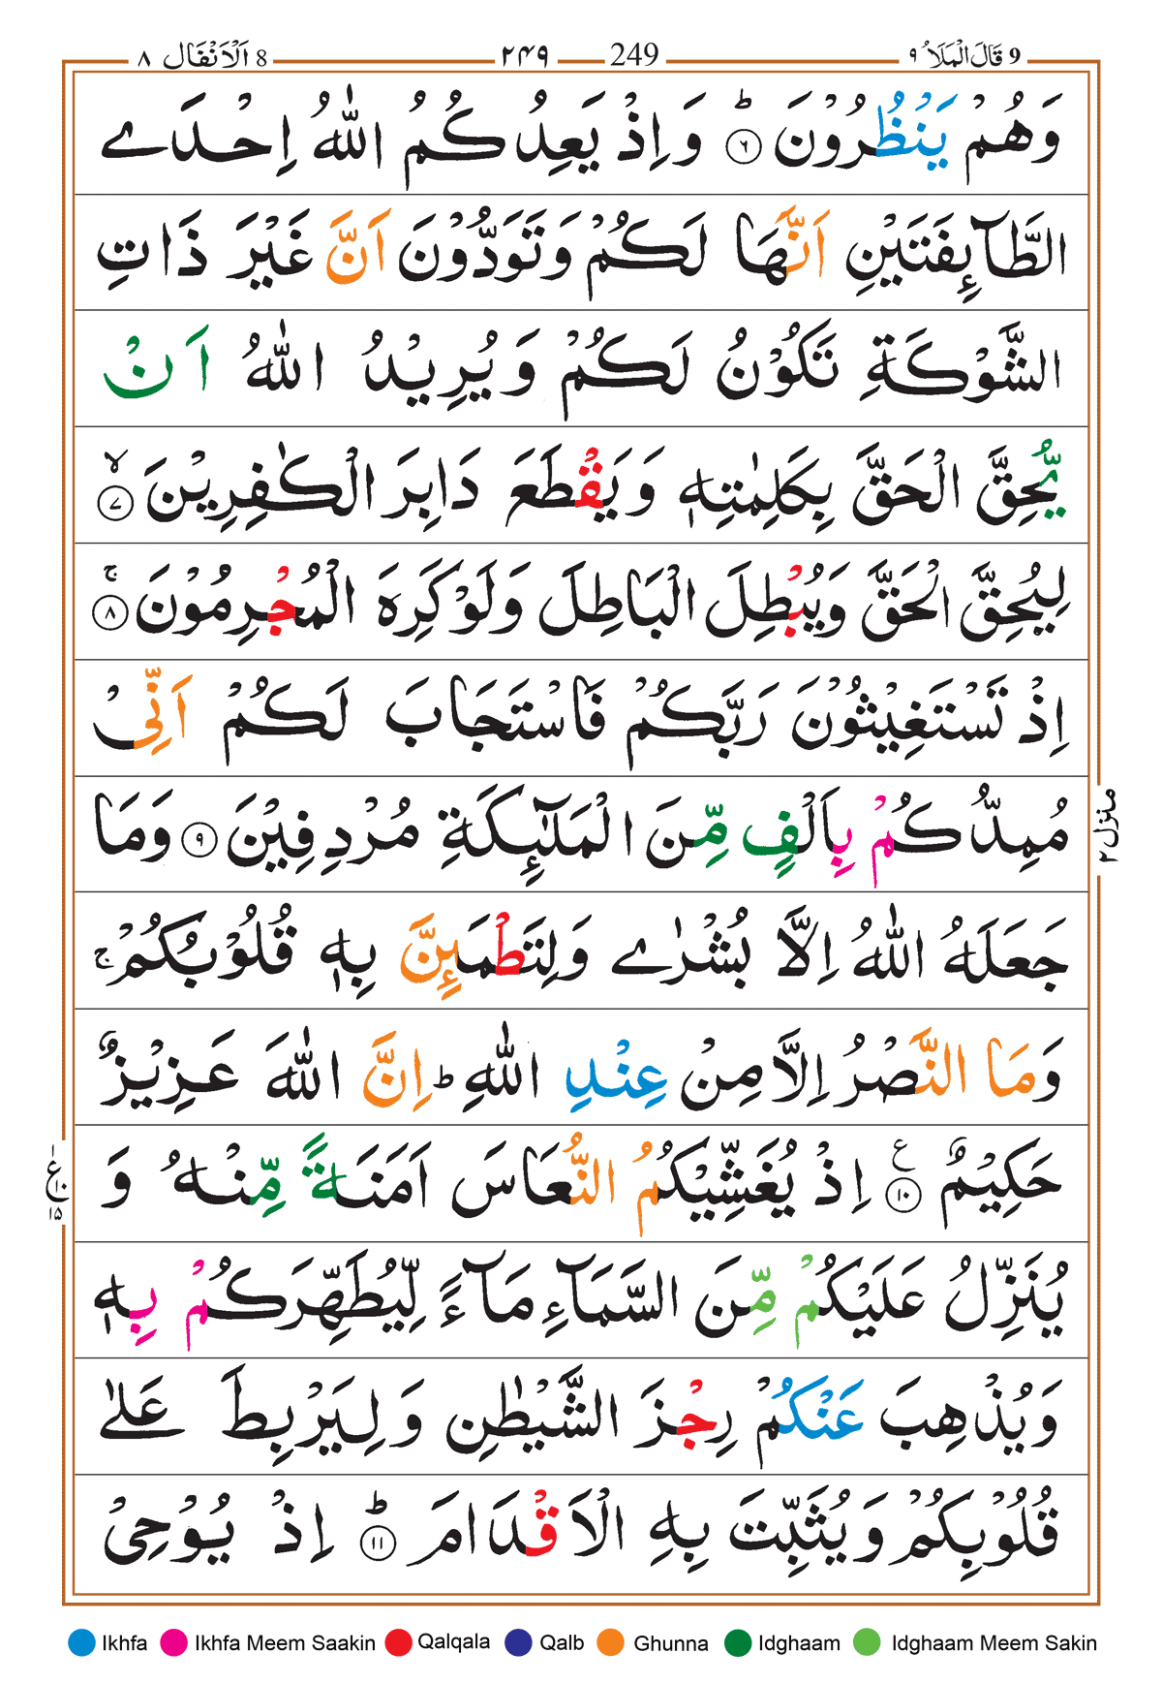 9 قَالَ الْمَلَاُ ۹ 249 ۲۴۹ 8 اَلْاَنْفَال ۸
وَهُمْ يَنْظُرُوْنَ ؕ ۶ وَاِذْ يَعِدُكُمُ اللّٰهُ اِحْدَے
الطَّآئِفَتَيْنِ اَنَّهَا لَكُمْ وَتَوَدُّوْنَ اَنَّ غَيْرَ ذَاتِ
الشَّوْكَةِ تَكُوْنُ لَكُمْ وَيُرِيْدُ اللّٰهُ اَنْ
يُّحِقَّ الْحَقَّ بِكَلِمٰتِهٖ وَيَقْطَعَ دَابِرَ الْكٰفِرِيْنَ ۙ ۷
لِيُحِقَّ الْحَقَّ وَيُبْطِلَ الْبَاطِلَ وَلَوْكَرِهَ الْمُجْرِمُوْنَ ۚ ۸
اِذْ تَسْتَغِيْثُوْنَ رَبَّكُمْ فَاسْتَجَابَ لَكُمْ اَنِّىْ
مُمِدُّكُمْ بِاَلْفٍ مِّنَ الْمَلٰٓئِكَةِ مُرْدِفِيْنَ ۹ وَمَا
جَعَلَهُ اللّٰهُ اِلَّا بُشْرٰے وَلِتَطْمَئِنَّ بِهٖ قُلُوْبُكُمْ ۚ
وَمَا النَّصْرُ اِلَّا مِنْ عِنْدِ اللّٰهِ ؕ اِنَّ اللّٰهَ عَزِيْزٌ
حَكِيْمٌ ۱۰ ع اِذْ يُغَشِّيْكُمُ النُّعَاسَ اَمَنَةً مِّنْهُ وَ
يُنَزِّلُ عَلَيْكُمْ مِّنَ السَّمَآءِ مَآءً لِّيُطَهِّرَكُمْ بِهٖ
وَيُذْهِبَ عَنْكُمْ رِجْزَ الشَّيْطٰنِ وَلِيَرْبِطَ عَلٰے
قُلُوْبِكُمْ وَيُثَبِّتَ بِهِ الْاَقْدَامَ ؕ ۱۱ اِذْ يُوْحِىْ
منزل ۲
ع ۱۵
Ikhfa Ikhfa Meem Saakin Qalqala Qalb Ghunna Idghaam Idghaam Meem Sakin